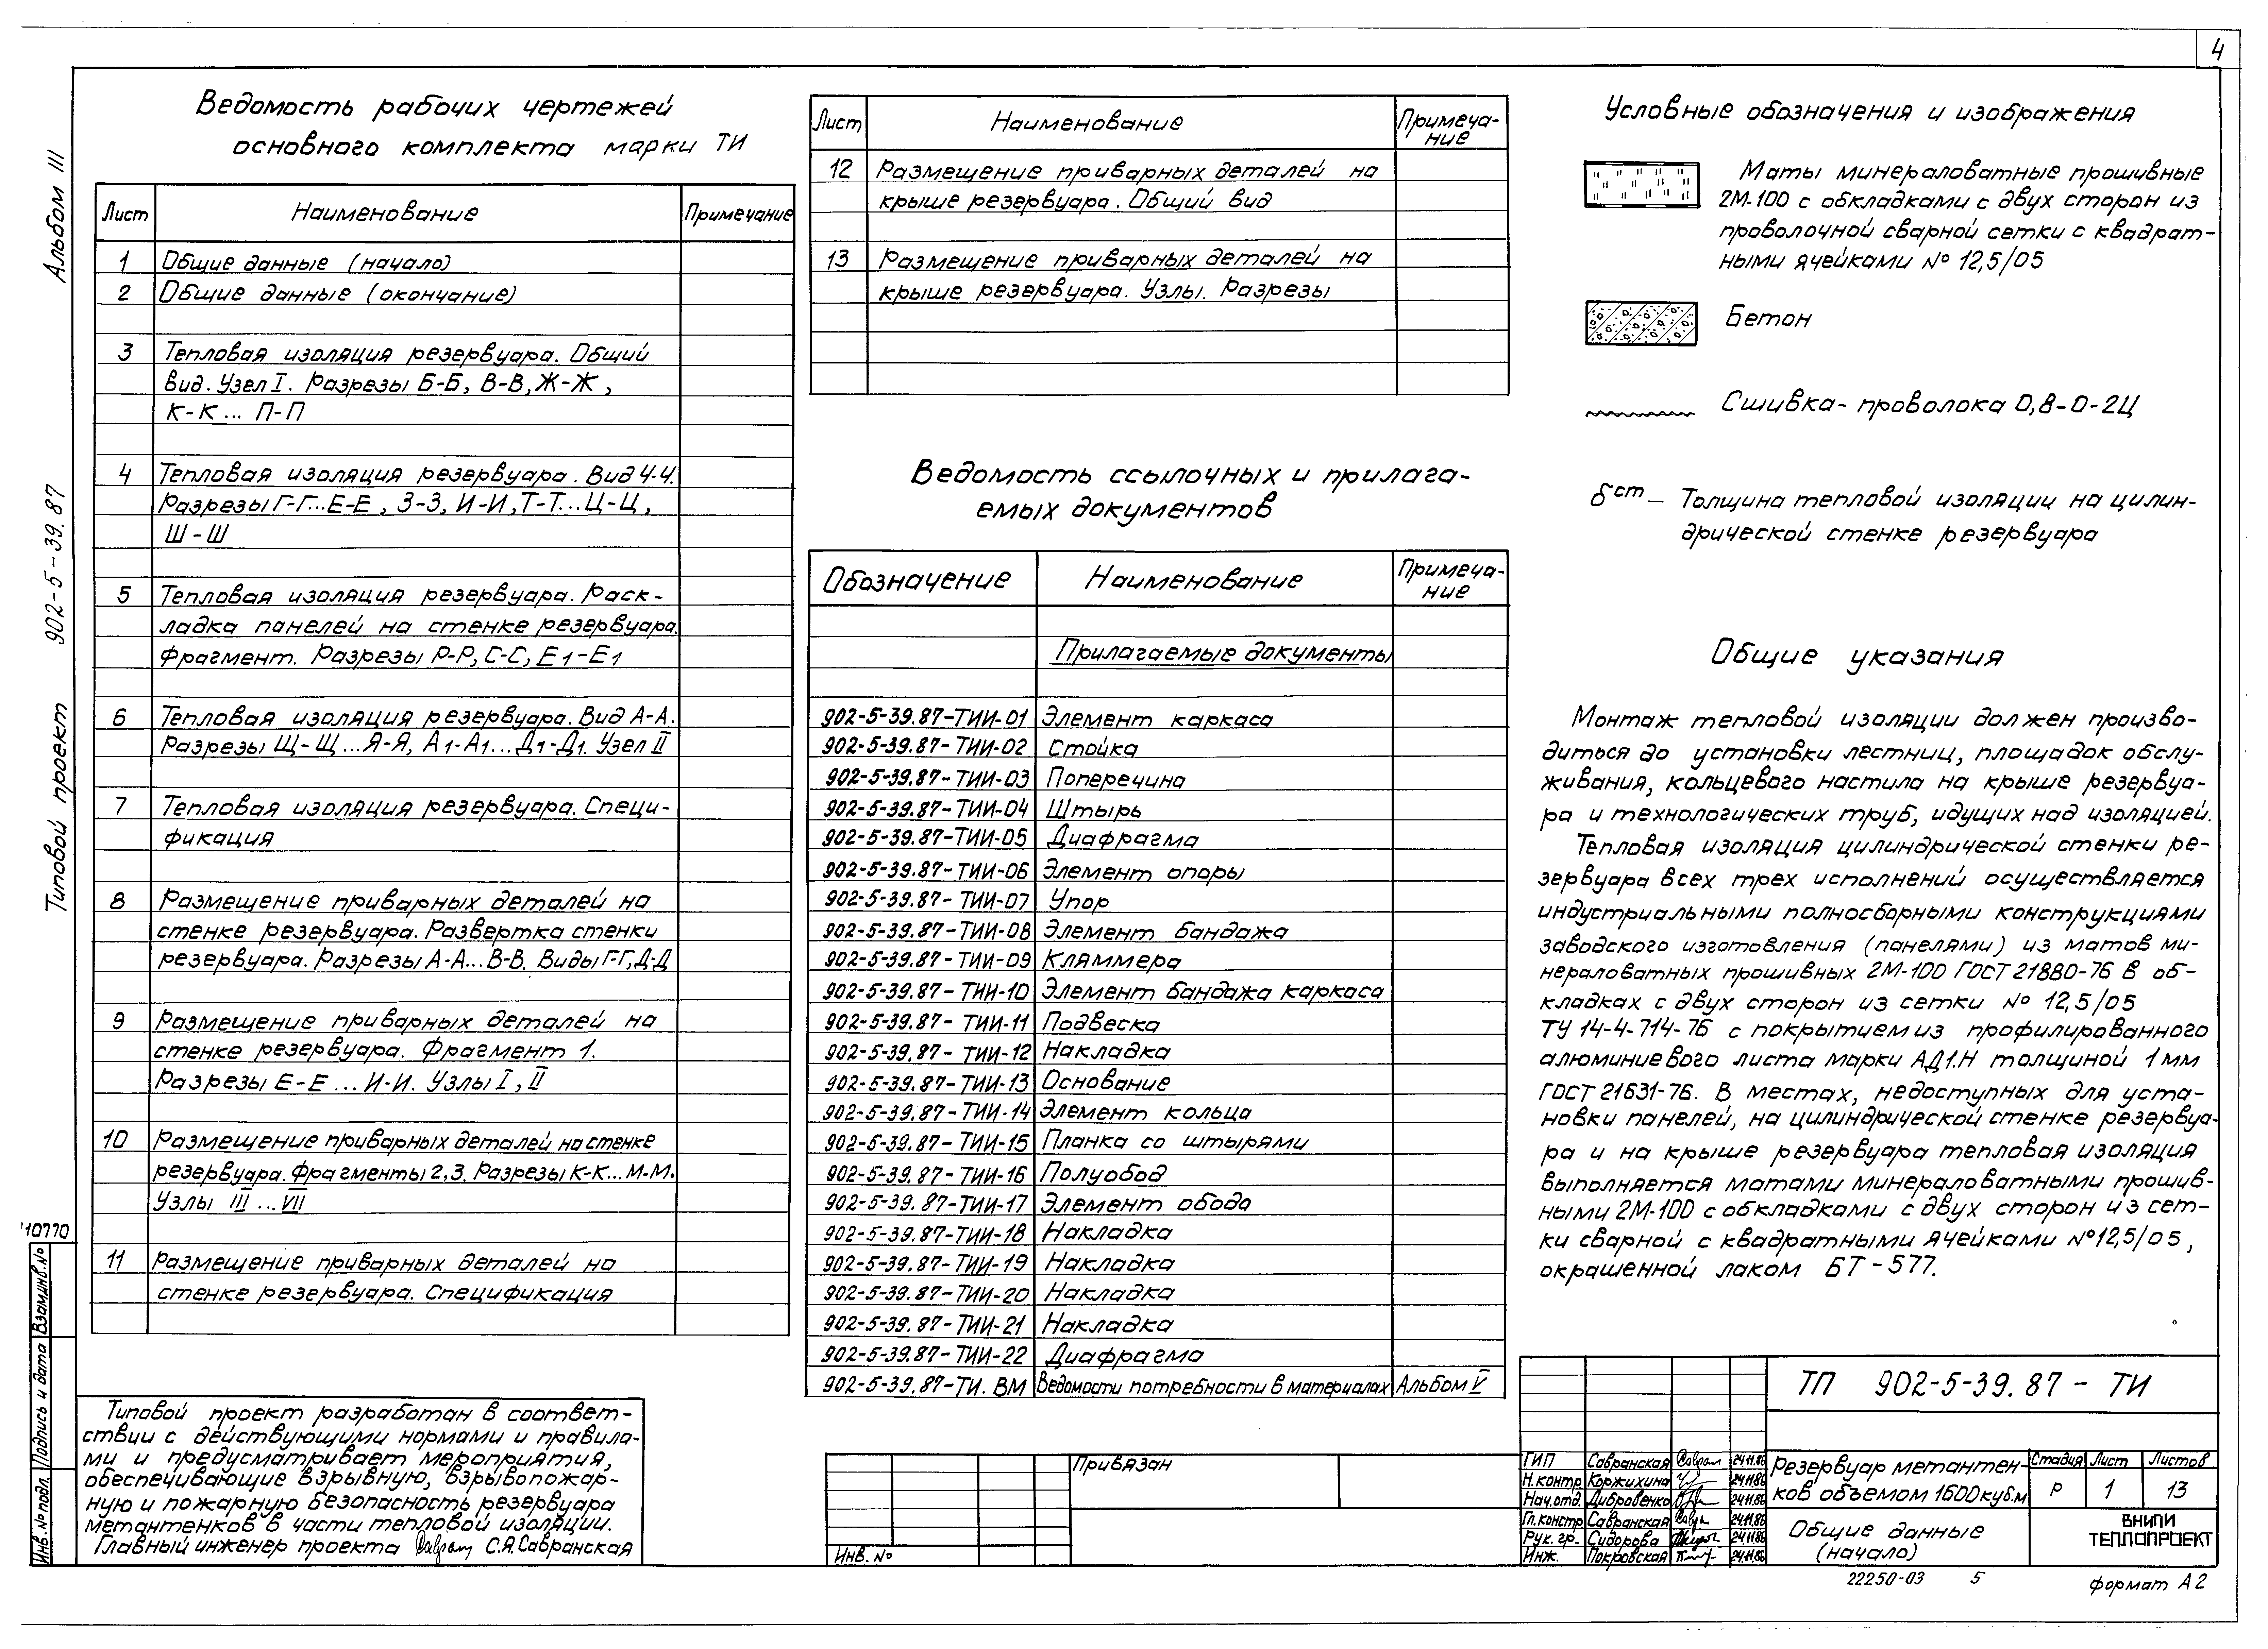 4
Альбом III
Типовой проект 902-5-39.87
Ведомость рабочих чертежей
основного комплекта марки ТИ
Лист Наименование Примечание
1 Общие данные (начало)
2 Общие данные (окончание)
3 Тепловая изоляция резервуара. Общий
вид. Узел I. Разрезы Б-Б, В-В, Ж-Ж,
К-К... П-П
4 Тепловая изоляция резервуара. Вид Ч-Ч.
Разрезы Г-Г...Е-Е, З-З, И-И, Т-Т...Ц-Ц,
Ш-Ш
5 Тепловая изоляция резервуара. Раск-
ладка панелей на стенке резервуара.
Фрагмент. Разрезы Р-Р, С-С, Е1-Е1
6 Тепловая изоляция резервуара. Вид А-А.
Разрезы Щ-Щ...Я-Я, А1-А1...Д1-Д1. Узел II
7 Тепловая изоляция резервуара. Специ-
фикация
8 Размещение приварных деталей на
стенке резервуара. Развертка стенки
резервуара. Разрезы А-А...В-В. Виды Г-Г, Д-Д
9 Размещение приварных деталей на
стенке резервуара. Фрагмент 1.
Разрезы Е-Е...И-И. Узлы I, II
10 Размещение приварных деталей на стенке
резервуара. Фрагменты 2,3. Разрезы К-К...М-М.
Узлы III...VII
11 Размещение приварных деталей на
стенке резервуара. Спецификация
Типовой проект разработан в соответ-
ствии с действующими нормами и правила-
ми и предусматривает мероприятия,
обеспечивающие взрывную, взрывопожар-
ную и пожарную безопасность резервуара
метантенков в части тепловой изоляции.
Главный инженер проекта С.Я.Савранская
10770
Взам.инв.№
Подпись и дата
Инв.№ подл.
Лист Наименование Примеча-
ние
12 Размещение приварных деталей на
крыше резервуара. Общий вид
13 Размещение приварных деталей на
крыше резервуара. Узлы. Разрезы
Ведомость ссылочных и прилага-
емых документов
Обозначение Наименование Примеча-
ние
Прилагаемые документы
902-5-39.87-ТИИ-01 Элемент каркаса
902-5-39.87-ТИИ-02 Стойка
902-5-39.87-ТИИ-03 Поперечина
902-5-39.87-ТИИ-04 Штырь
902-5-39.87-ТИИ-05 Диафрагма
902-5-39.87-ТИИ-06 Элемент опоры
902-5-39.87-ТИИ-07 Упор
902-5-39.87-ТИИ-08 Элемент бандажа
902-5-39.87-ТИИ-09 Кляммера
902-5-39.87-ТИИ-10 Элемент бандажа каркаса
902-5-39.87-ТИИ-11 Подвеска
902-5-39.87-ТИИ-12 Накладка
902-5-39.87-ТИИ-13 Основание
902-5-39.87-ТИИ-14 Элемент кольца
902-5-39.87-ТИИ-15 Планка со штырями
902-5-39.87-ТИИ-16 Полуобод
902-5-39.87-ТИИ-17 Элемент обода
902-5-39.87-ТИИ-18 Накладка
902-5-39.87-ТИИ-19 Накладка
902-5-39.87-ТИИ-20 Накладка
902-5-39.87-ТИИ-21 Накладка
902-5-39.87-ТИИ-22 Диафрагма
902-5-39.87-ТИ.ВМ Ведомости потребности в материалах Альбом V
Привязан
Инв. №
Условные обозначения и изображения
Маты минераловатные прошивные
2М-100 с обкладками с двух сторон из
проволочной сварной сетки с квадрат-
ными ячейками № 12,5/05
Бетон
Сшивка-проволока 0,8-О-2Ц
δст – Толщина тепловой изоляции на цилин-
дрической стенке резервуара
Общие указания
Монтаж тепловой изоляции должен произво-
диться до установки лестниц, площадок обслу-
живания, кольцевого настила на крыше резервуа-
ра и технологических труб, идущих над изоляцией.
Тепловая изоляция цилиндрической стенки ре-
зервуара всех трех исполнений осуществляется
индустриальными полносборными конструкциями
заводского изготовления (панелями) из матов ми-
нераловатных прошивных 2М-100 ГОСТ 21880-76 в об-
кладках с двух сторон из сетки № 12,5/05
ТУ 14-4-714-76 с покрытием из профилированного
алюминиевого листа марки АД1.Н толщиной 1мм
ГОСТ 21631-76. В местах, недоступных для уста-
новки панелей, на цилиндрической стенке резервуа-
ра и на крыше резервуара тепловая изоляция
выполняется матами минераловатными прошив-
ными 2М-100 с обкладками с двух сторон из сет-
ки сварной с квадратными ячейками №12,5/05,
окрашенной лаком БТ-577.
ТП 902-5-39.87-ТИ
ГИП Савранская 24.11.86
Н.контр Коржихина 24.11.86
Нач.отд. Дибровенко 24.11.86
Гл.констр Савранская 24.11.86
Рук. гр. Сидорова 24.11.86
Инж. Покровская 24.11.86
Резервуар метантен-
ков объемом 1600куб.м
Стадия Лист Листов
Р 1 13
Общие данные
(начало)
ВНИПИ
ТЕПЛОПРОЕКТ
22250-03 5
формат А2